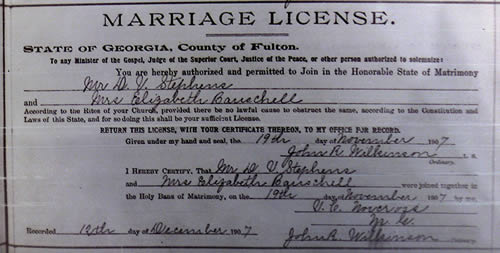 MARRIAGE LICENSE.
STATE OF GEORGIA, County of Fulton.
To any Minister of the Gospel, Judge of the Superior Court, Justice of the Peace, or other person authorized to solemnize:
You are hereby authorized and permitted to Join in the Honorable State of Matrimony
Mr D. V. Stephens
and Mrs Elizabeth Bauschell
According to the Rites of your Church, provided there be no lawful cause to obstruct the same, according to the Constitution and
Laws of this State, and for so doing this shall be your sufficient License.
RETURN THIS LICENSE, WITH YOUR CERTIFICATE THEREON, TO MY OFFICE FOR RECORD.
Given under my hand and seal, the 19th day of November 1907
John R. Wilkinson L. S.
Ordinary.
I HEREBY CERTIFY, That Mr D V Stephens
and Mrs Elizabeth Bauschell were joined together in
the Holy Bans of Matrimony, on the 19th day of November 1907 by me,
V. C. Norcross
M. G.
Recorded 12th day of December 1907
John R. Wilkinson
Ordinary.